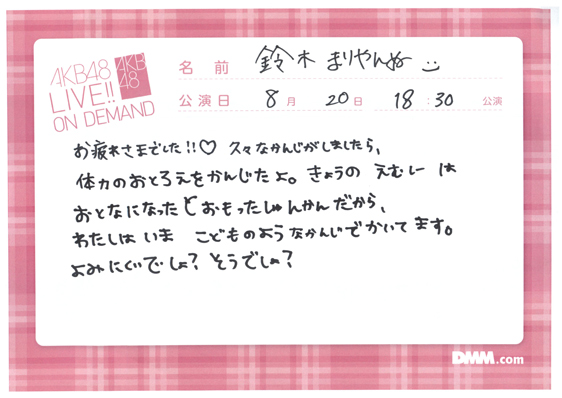 AKB48
LIVE!!
ON DEMAND
AKB
48
名前 鈴木まりやんぬ
公演日 8月 20日 18:30 公演
お疲れさまでした!!♡ 久々なかんじがしましたら、
体力のおとろえをかんじたよ。きょうの えむしー は
おとなになったとおもったしゅんかんだから、
わたしはいま こどものようなかんじでかいてます。
よみにくいでしょ?そうでしょ?
DMM.com